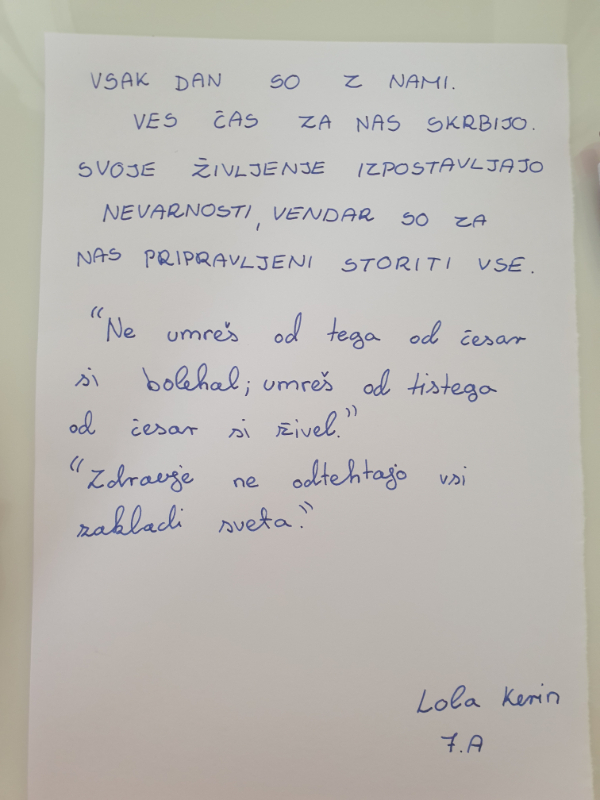 VSAK DAN SO Z NAMI.
VES ČAS ZA NAS SKRBIJO.
SVOJE ŽIVLJENJE IZPOSTAVLJAJO
NEVARNOSTI, VENDAR SO ZA
NAS PRIPRAVLJENI STORITI VSE.
“Ne umreš od tega od česar
si bolehal; umreš od tistega
od česar si živel.”
“Zdravje ne odtehtajo vsi
zakladi sveta.”
Lola Kerin
7.A